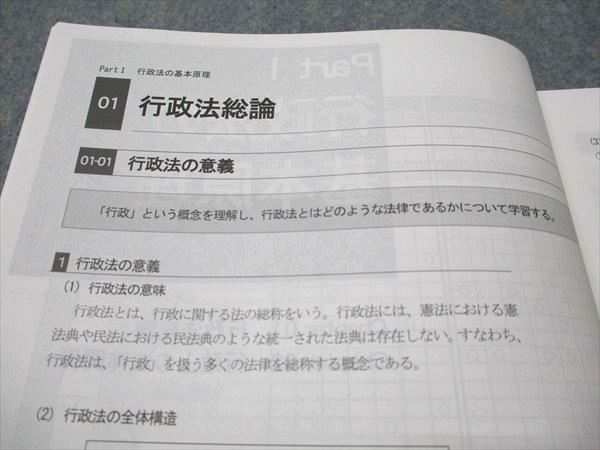 Part I 行政法の基本原理
01 行政法総論
01-01 行政法の意義
「行政」という概念を理解し、行政法とはどのような法律であるかについて学習する。
1 行政法の意義
(1) 行政法の意味
行政法とは、行政に関する法の総称をいう。行政法には、憲法における憲
法典や民法における民法典のような統一された法典は存在しない。すなわち、
行政法は、「行政」を扱う多くの法律を総称する概念である。
(2) 行政法の全体構造
(3)